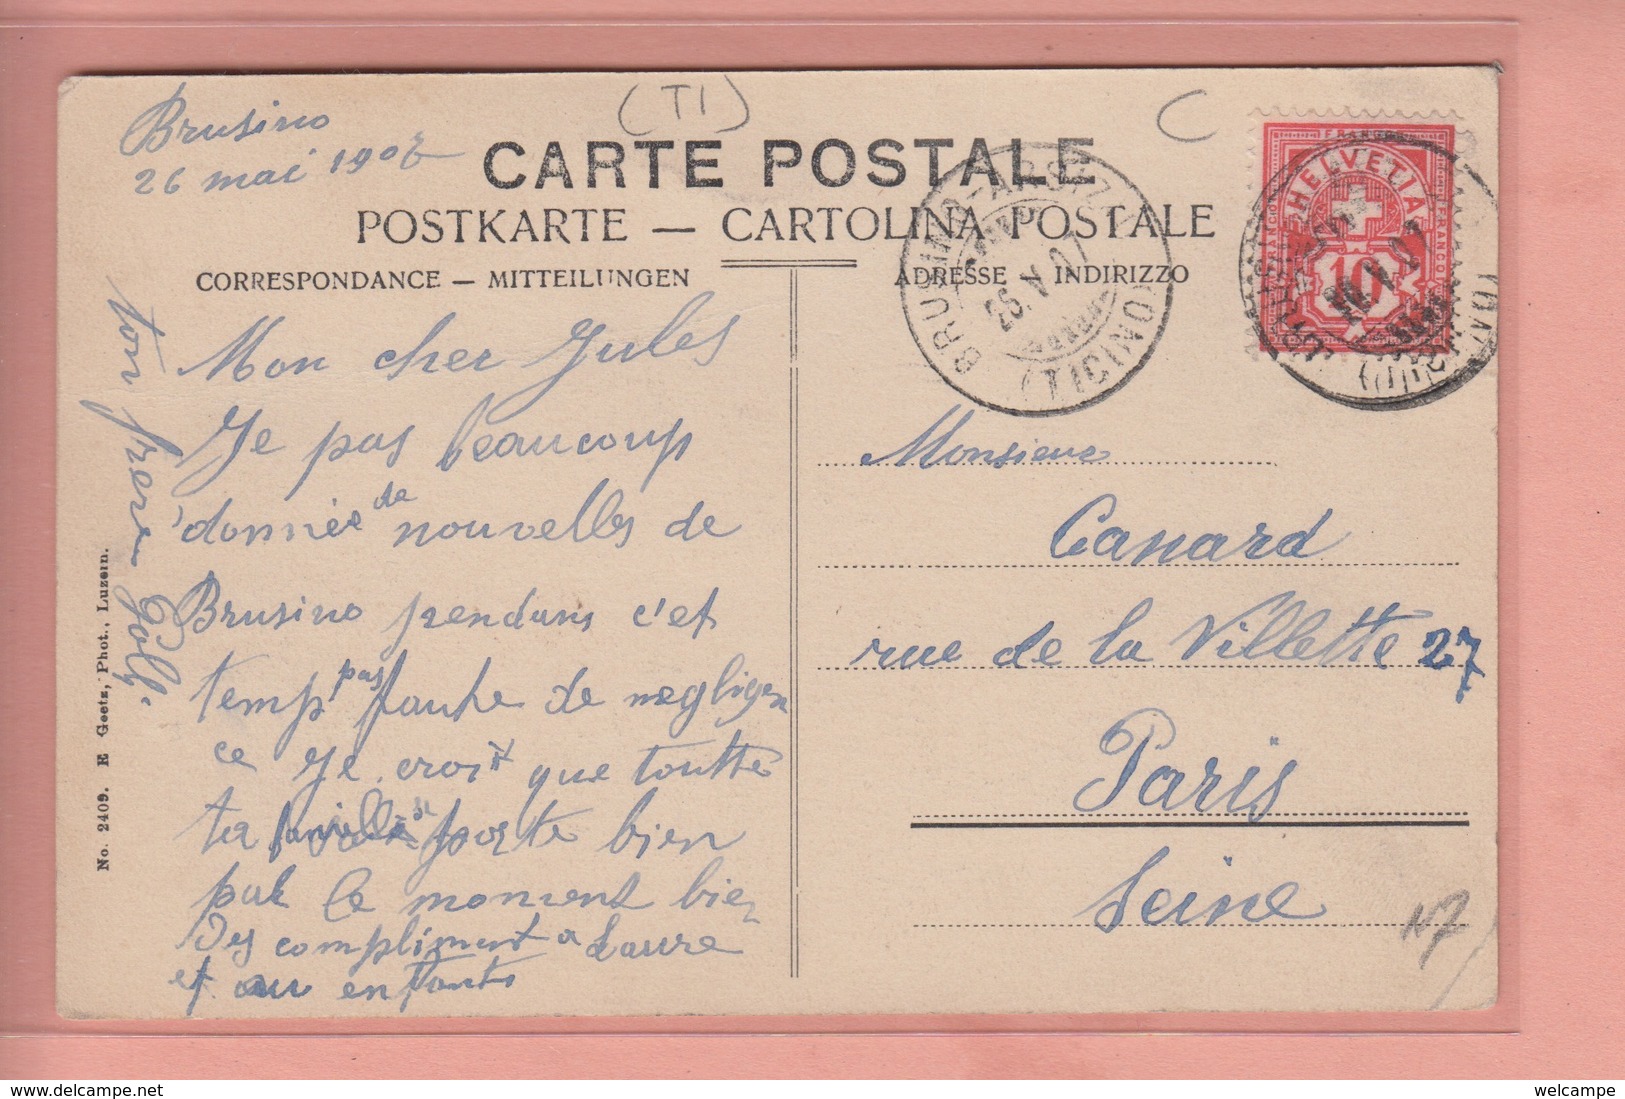 (TI)
C
Brusino
26 mai 1907
CARTE POSTALE
POSTKARTE — CARTOLINA POSTALE
CORRESPONDANCE — MITTEILUNGEN
ADRESSE — INDIRIZZO
FRANCO
HELVETIA
FRANCO
10
BRUSINO-ARSIZIO
26. V. 07
(TICINO)
Mon cher Jules
Je pas beaucoup
donnée de nouvelles de
Brusino pendans c'et
temp pas faute de negligen
ce je croit que toutte
ta famille se porte bien
pal le moment bien
Des compliment a Laure
et au enfants
ton frere
Monsieur
Canard
rue de la Villette 27
Paris
Seine
N7
No. 2409. E Goetz, Phot., Luzern.
delcampe.net
welcampe